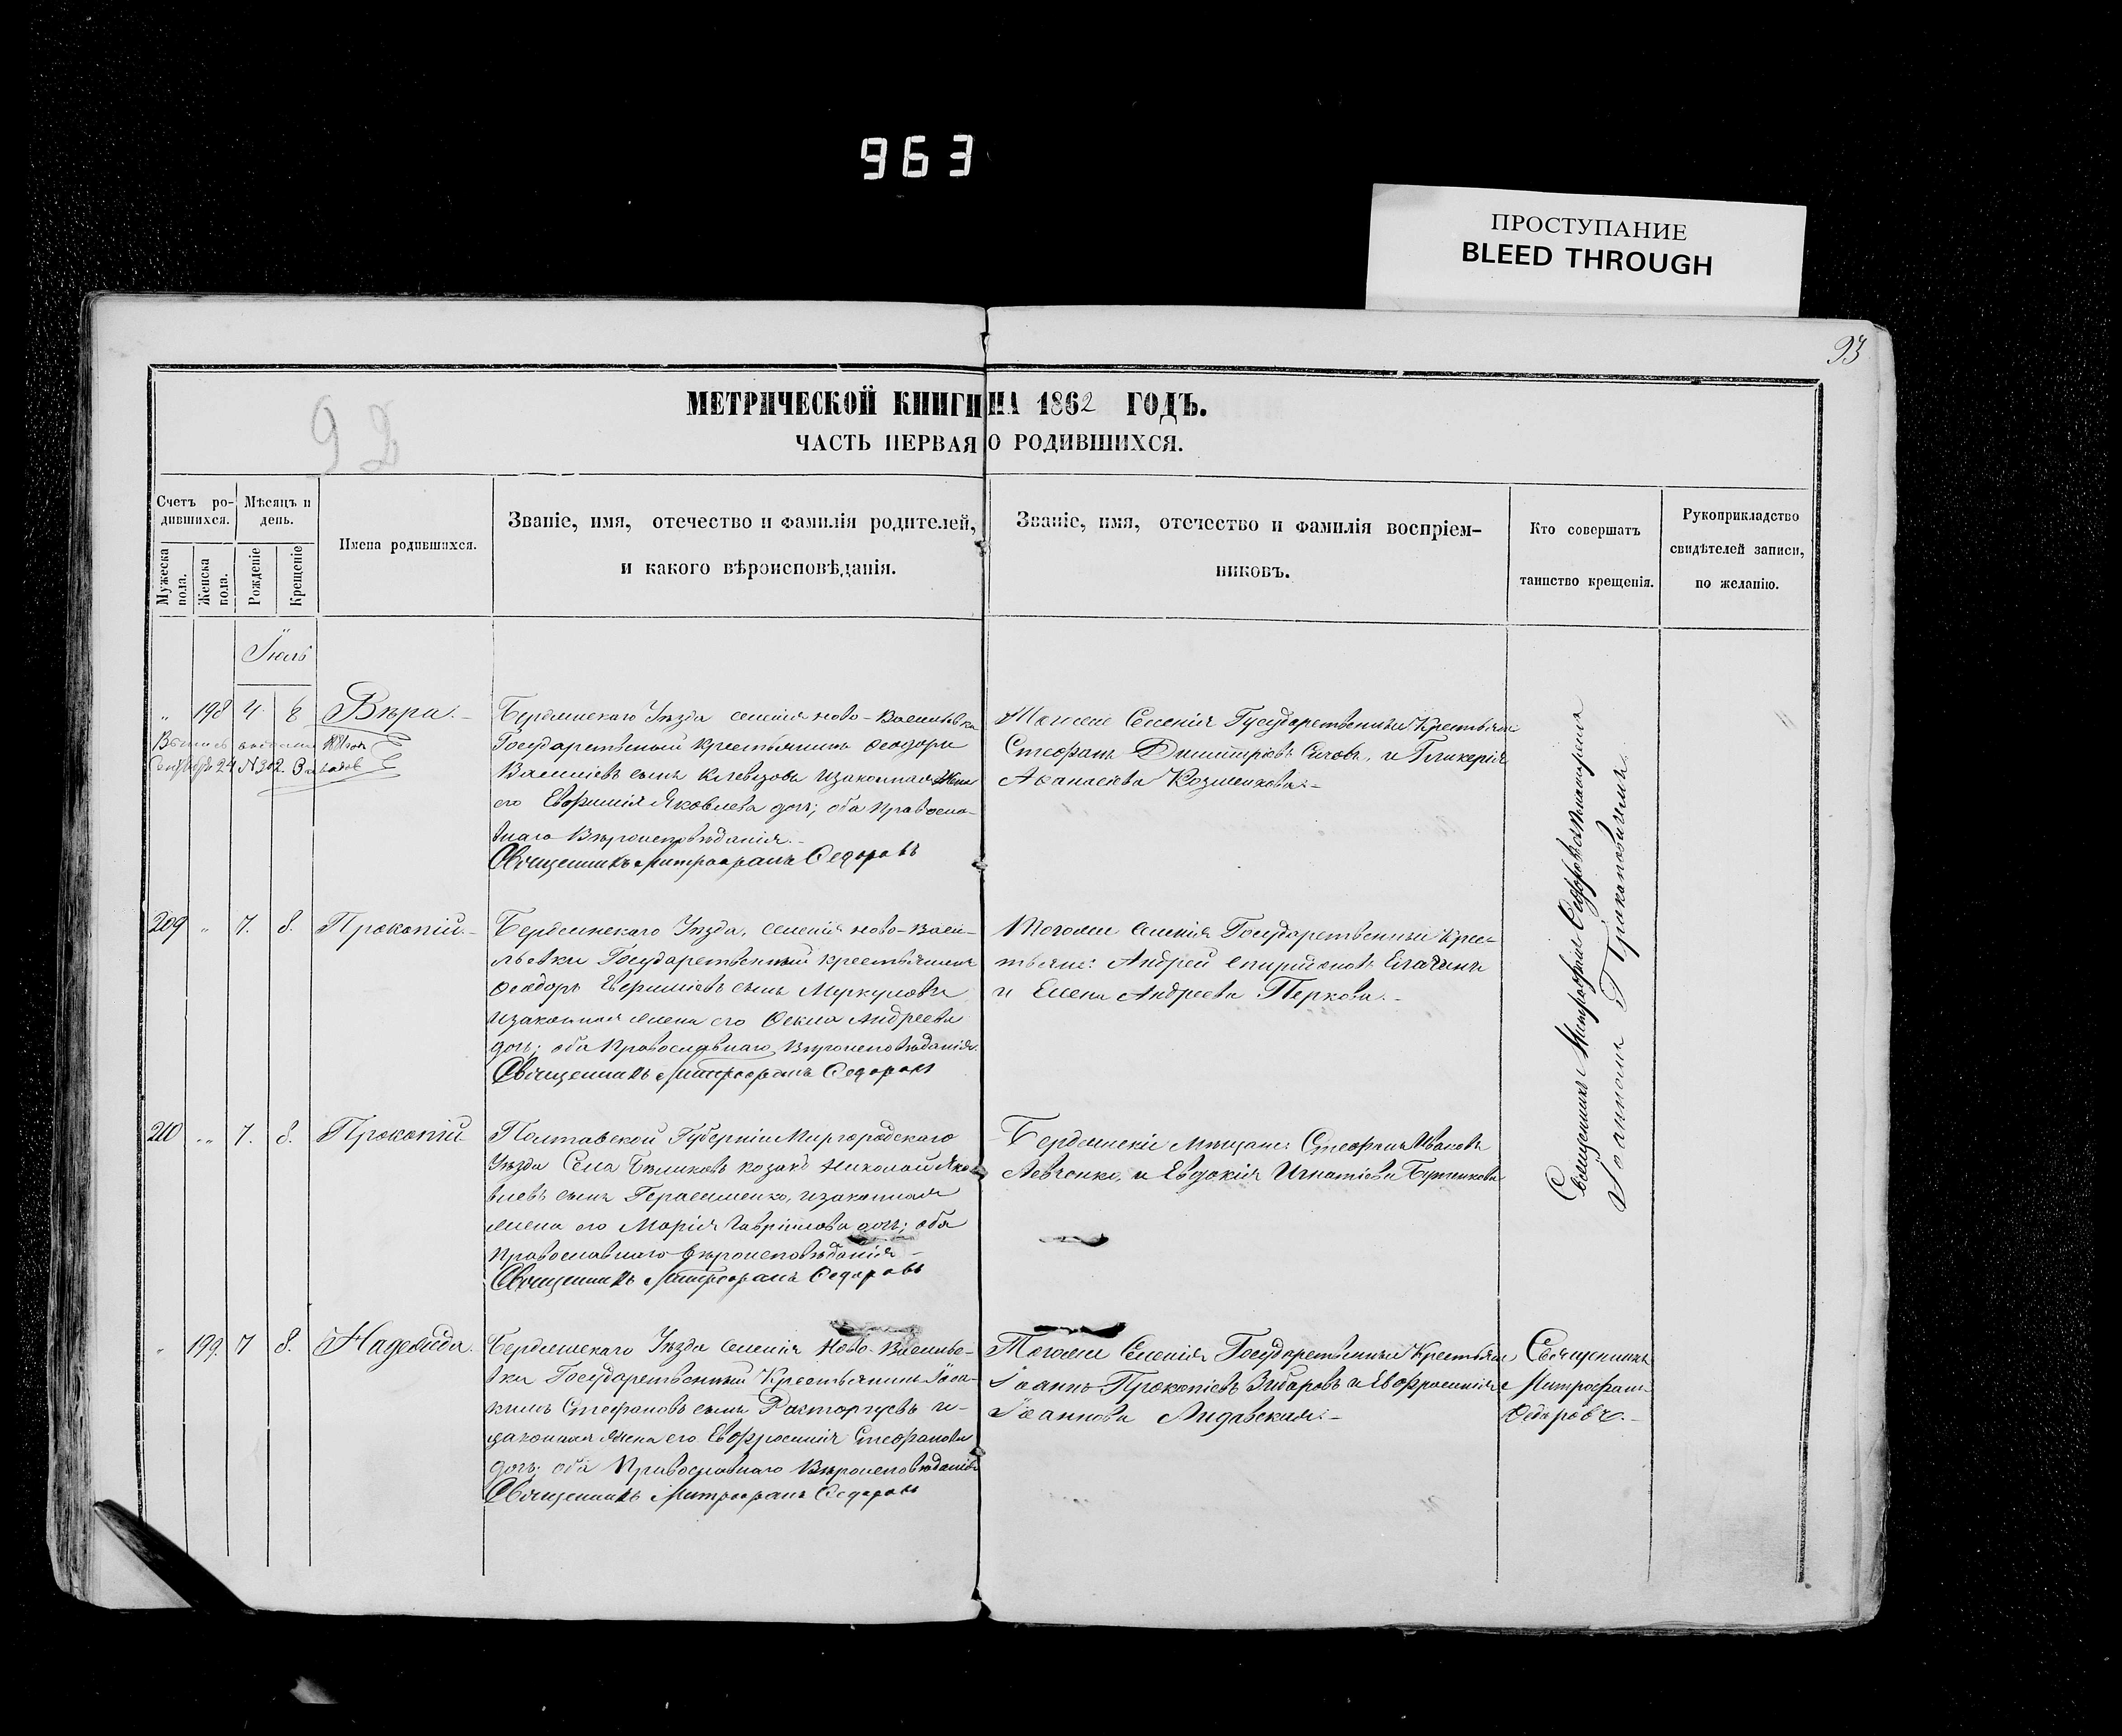 963
ПРОСТУПАНИЕ
BLEED THROUGH
93
92
МЕТРИЧЕСКОЙ КНИГИ НА 1862 ГОДЪ.
ЧАСТЬ ПЕРВАЯ О РОДИВШИХСЯ.
Счетъ ро-
дившихся.
Мѣсяцъ и
день.
Мужеска
пола.
Женска
пола.
Рожденіе
Крещеніе
Имена родившихся.
Званіе, имя, отечество и фамилія родителей,
и какого вѣроисповѣданія.
Званіе, имя, отечество и фамилія воспріем-
никовъ.
Кто совершатъ
таинство крещенія.
Рукоприкладство
свидѣтелей записи,
по желанію.
Іюль
" 198 4. 8 Вѣра.-
24 №302.
Бердянскаго Уѣзда селенія Ново-Васильевки
Государственный крестьянинъ Ѳеодоръ
сынъ изаконная жена
его Евфимія Яковлева дочь; оба Правосла-
внаго Вѣроисповѣданія.-
Священникъ Митрофанъ Ѳедоровъ
Тогоже Селенія Государственныи Крестьяне
Стефанъ Димитріевъ и Гликерія
Аѳанасіева
Священникъ Митрофанъ Ѳедоровъ
Іоанномъ
209 " 7. 8. Прокопій.-
Бердянскаго Уѣзда, селенія Ново-Васи-
льевки Государственный крестьянинъ
Ѳеодоръ сынъ Меркуловъ
изаконная жена его Ѳекла Андреева
дочь; оба Православнаго Вѣроисповѣданія.
Священникъ Митрофанъ Ѳедоровъ
Тогоже селенія Государственныи Крес-
тьяне: Андрей Спиридоновъ
и Елена Андреева Перкова.-
210 " 7. 8. Прокопій
Полтавской Губерніи Миргородскаго
Уѣзда Села козакъ Николай Яко-
влевъ сынъ Герасименко, изаконная
жена его Марія Гавріилова дочь; оба
Православнаго Вѣроисповѣданія-
Священникъ Митрофанъ Ѳедоровъ
Бердянскіе мѣщане: Стефанъ Ивановъ
Левченко, и Евдокія Игнатіева
" 199. 7 8. Надежда.
Бердянскаго Уѣзда селенія Ново-Василье-
вки Государственный Крестьянинъ Іоа-
кимъ Стефановъ сынъ Расторгуевъ и-
законная жена его Евфросинія Стефанова
дочь; оба Православнаго Вѣроисповѣданія
Священникъ Митрофанъ Ѳедоровъ
Тогоже Селенія Государственныи Крестьяне
Іоаннъ Прокопіевъ и Евфросинія
Іоаннова
Священникъ
Митрофанъ
Ѳедоровъ.-